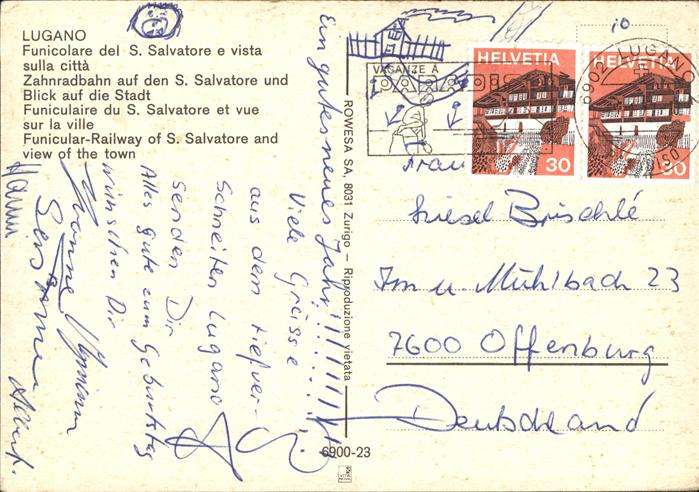 LUGANO
Funicolare del S. Salvatore e vista
sulla città
Zahnradbahn auf den S. Salvatore und
Blick auf die Stadt
Funiculaire du S. Salvatore et vue
sur la ville
Funicular-Railway of S. Salvatore and
view of the town
Ein gutes neues Jahr!!!!!!!
Viele Grüsse
aus dem tiefver-
schneiten Lugano
senden Dir
Alles gute zum Geburtstag
wünschen Dir
Yvonne
Hanni
ROWESA SA, 8031 Zurigo - Riproduzione vietata
6900-23
VACANZE A
HELVETIA
30
HELVETIA
30
6902 LUGANO
Frau
Liesel Brischlé
Im u. Mühlbach 23
7600 Offenburg
Deutschland